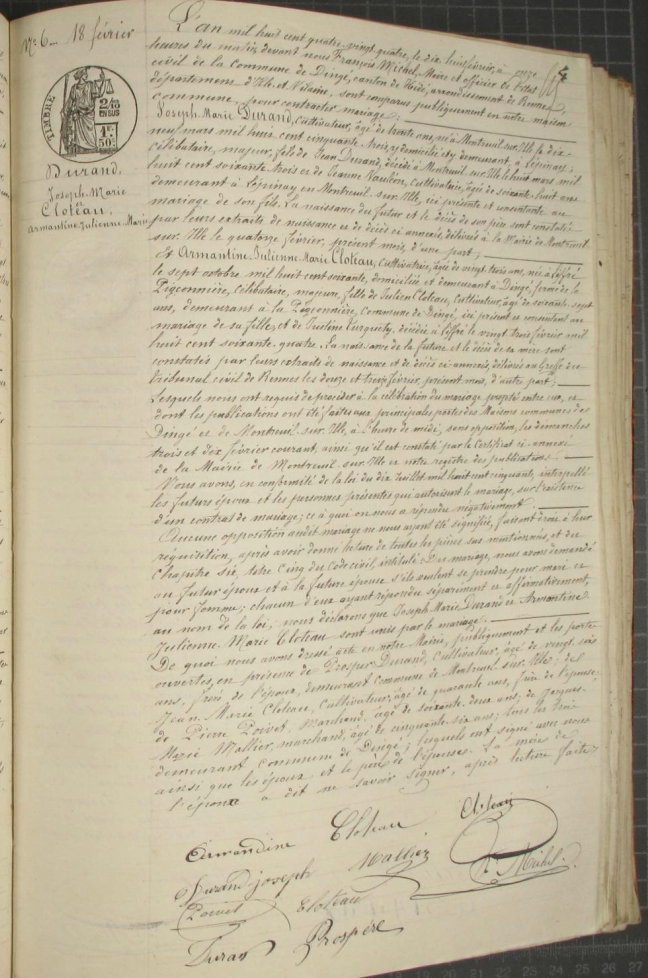 N° 6 — 18 février
TIMBRE
2/10
EN SUS
1F.
50c
Durand,
Joseph-Marie
et
Cloteau,
Armantine-Julienne-Marie
L'an mil huit cent quatre-vingt quatre, le dix huit février, à onze
heures du matin devant nous François Michel, Maire et officier de l'état
civil de la Commune de Dingé, canton de Hédé, arrondissement de Rennes,
département d'Ille-et-Vilaine, sont comparus publiquement en notre maison
commune, pour contracter mariage:
Joseph Marie Durand, Cultivateur, âgé de trente ans, né à Montreuil sur Ille le dix
neuf mars mil huit cent cinquante trois, y domicilié et y demeurant à l'épinay,
célibataire, majeur, fils de Jean Durand, décédé à Montreuil sur Ille le huit mars mil
huit cent soixante trois et de Jeanne Cultivatrice, âgée de soixante huit ans
demeurant à l'épinay en Montreuil sur Ille, ici présente et consentante au
mariage de son fils. La naissance du futur et le décès de son père sont constatés
par leurs extraits de naissance et de décès ci-annexés, délivrés à la Mairie de Montreuil
sur Ille le quatorze février, présent mois, d'une part;
Et Armantine Julienne Marie Cloteau, Cultivatrice, âgée de vingt trois ans, née à
le sept octobre mil huit cent soixante, domiciliée et demeurant à Dingé, ferme de la
Pigeonnière, Célibataire, majeure, fille de Julien Cloteau, Cultivateur, âgé de soixante sept
ans, demeurant à la Pigeonnière, Commune de Dingé, ici présent et consentant au
mariage de sa fille, et de Justine décédée à le vingt trois février mil
huit cent soixante quatre. La naissance de la future et le décès de sa mère sont
constatés par leurs extraits de naissance et de décès ci-annexés, délivrés au Greffe du
tribunal civil de Rennes les douze et treize février, présent mois, d'autre part;
Lesquels nous ont requis de procéder à la célébration du mariage projeté entre eux, et
dont les publications ont été faites aux principales portes des Maisons communes de
Dingé et de Montreuil sur Ille, à l'heure de midi, sans opposition, les dimanches
trois et dix février courant, ainsi qu'il est constaté par le Certificat ci-annexé
de la Mairie de Montreuil sur Ille et notre registre des publications.
Nous avons, en conformité de la loi du dix Juillet mil huit cent cinquante, interpellé
les futurs époux et les personnes présentes qui autorisent le mariage, sur l'existence
d'un contrat de mariage; ce à quoi on nous a répondu négativement.
Aucune opposition audit mariage ne nous ayant été signifiée, faisant droit à leur
réquisition, après avoir donné lecture de toutes les pièces sus-mentionnées, et du
Chapitre six, titre Cinq du Code civil, intitulé Du mariage, nous avons demandé
au futur époux et à la future épouse s'ils veulent se prendre pour mari et
pour femme; chacun d'eux ayant répondu séparément et affirmativement,
au nom de la loi, nous déclarons que Joseph Marie Durand et Armantine
Julienne Marie Cloteau sont unis par le mariage.
De quoi nous avons dressé acte en notre Mairie, publiquement et les portes
ouvertes, en présence de Prosper Durand, Cultivateur, âgé de vingt six
ans, frère de l'époux, demeurant commune de Montreuil sur Ille; de
Jean Marie Cloteau, Cultivateur, âgé de quarante ans, frère de l'épouse;
de Pierre Poivet, Marchand, âgé de soixante deux ans, de Jacques
Marie Mallier, marchand, âgé de cinquante six ans; tous les trois
demeurant commune de Dingé; lesquels ont signé avec nous
ainsi que les époux et le père de l'épouse. La mère de
l'époux a dit ne savoir signer, après lecture faite.
Armandine Cloteau Cloteau
Durand joseph Mallier Michel
Poivet Cloteau
Duran Prospère